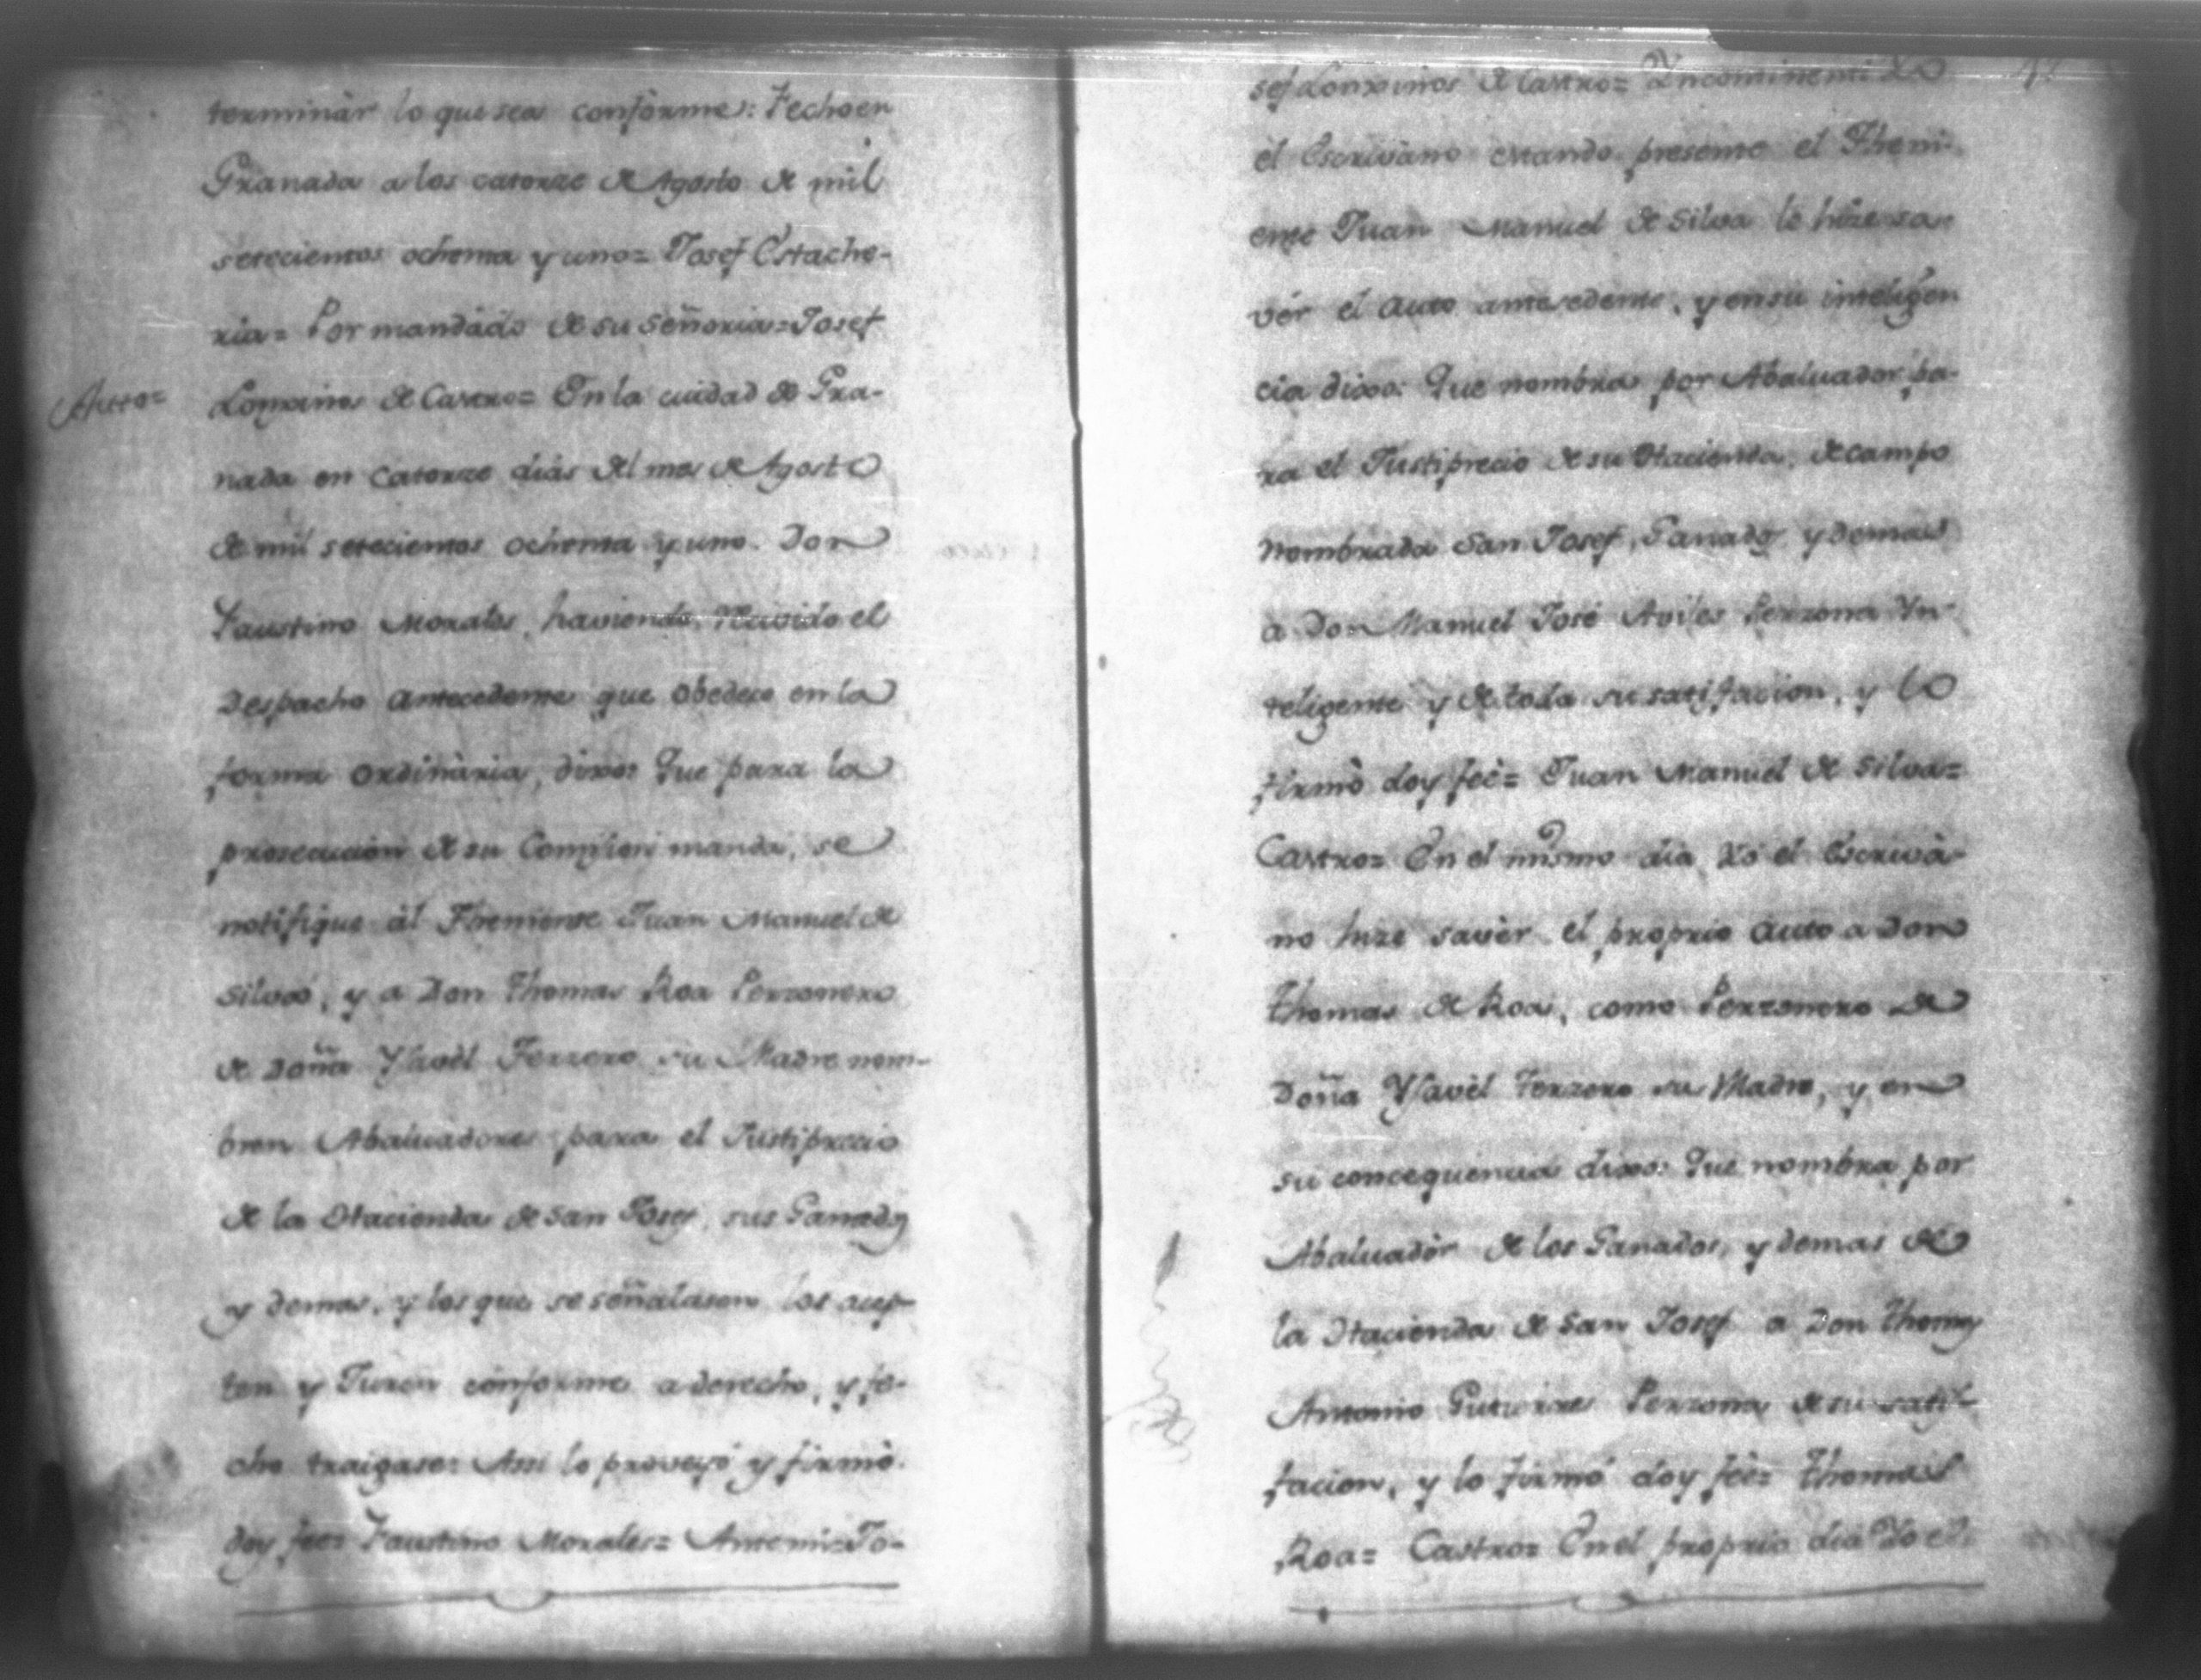 terminàr lo que sea confórme: Fecho en
Granada a los catorze de Agosto de mil
setecientos ochenta y uno= Josef Estache-
ria= Por mandàdo de su Señoria= Josef
Auto=
Longinos de Castro= En la ciudad de Gra-
nada en Catorze dias del mes de Agosto
de mil setecientos ochenta y uno. Don
Faustino Morales, haviendo recivido el
Despacho Antecedente que obedece en la
forma ordinària, dixo: Que para la
prosecucion de su Comision manda, se
notifique àl Theniente Juan Manuel de
Silva, y a Don Thomas Roa Perzonero
de Doña Ysavèl Ferrero su Madre nom-
bren Abaluadores para el Justiprecio
de la Hacienda de San Josef, sus Ganados
y demas, y los que se señalasen los acep-
ten y Juren conforme a derecho, y fe-
cho traigase: Assi lo proveyó y firmò.
doy fee= Faustino Morales= Antemi= Jo-
sef Longinos de Castro= Yncontinenti Yo
èl Escrivano estando presente el Theni-
ente Juan Manuel de Silva le hize sa-
vèr el Auto antesedente, y en su inteligen
cia dixo: Que nombra por Abaluador pa-
ra el Justiprecio de su Hacienda, de campo
nombrada San Josef, Ganado y demas
a Don Manuel José Aviles Perzona Yn-
teligente y de toda su satisfacion, y lo
firmò doy feè= Juan Manuel de Silva=
Castro= En el mismo dia Yo el Escrivà-
no hize savèr el proprio auto a Don
Thomas de Roa, como Perzonero de
Doña Ysavèl Ferrero su Madre, y en
su concequencia dixo: Que nombra por
Abaluadòr de los Ganados, y demas de
la Hacienda de San Josef a Don Thomas
Antonio Gutierres Perzona de su satis-
facion, y lo firmó doy feè= Thomas
Roa= Castro= En el proprio dia Yo el